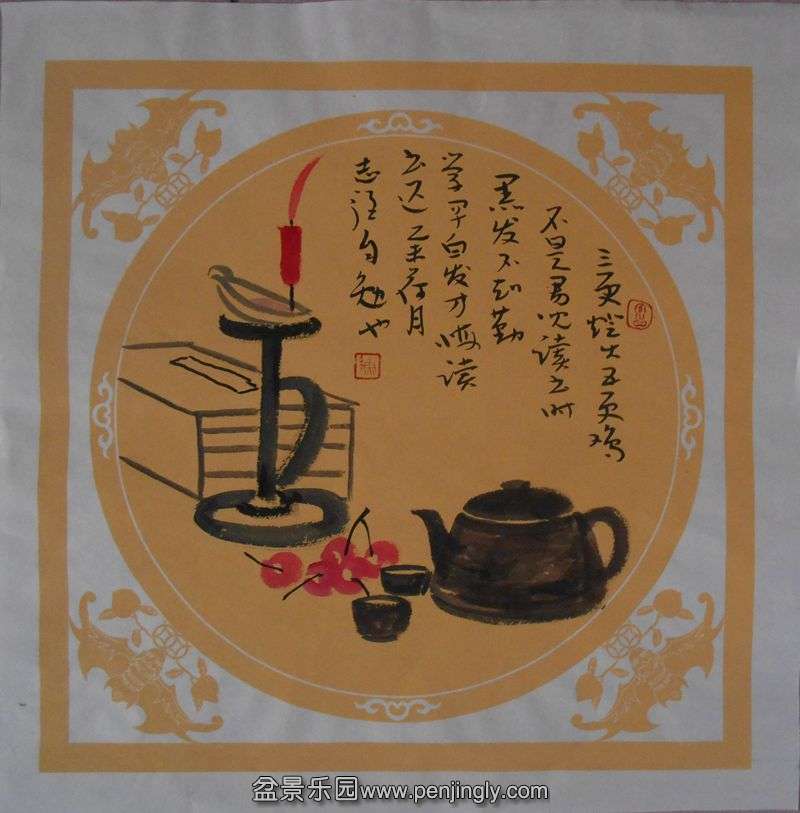 三更燈火五更鸡
正是男儿读书时
黑发不知勤
学早白发方悔读
书迟乙未荷月
志自勉也
盆景乐园www.penjingly.com